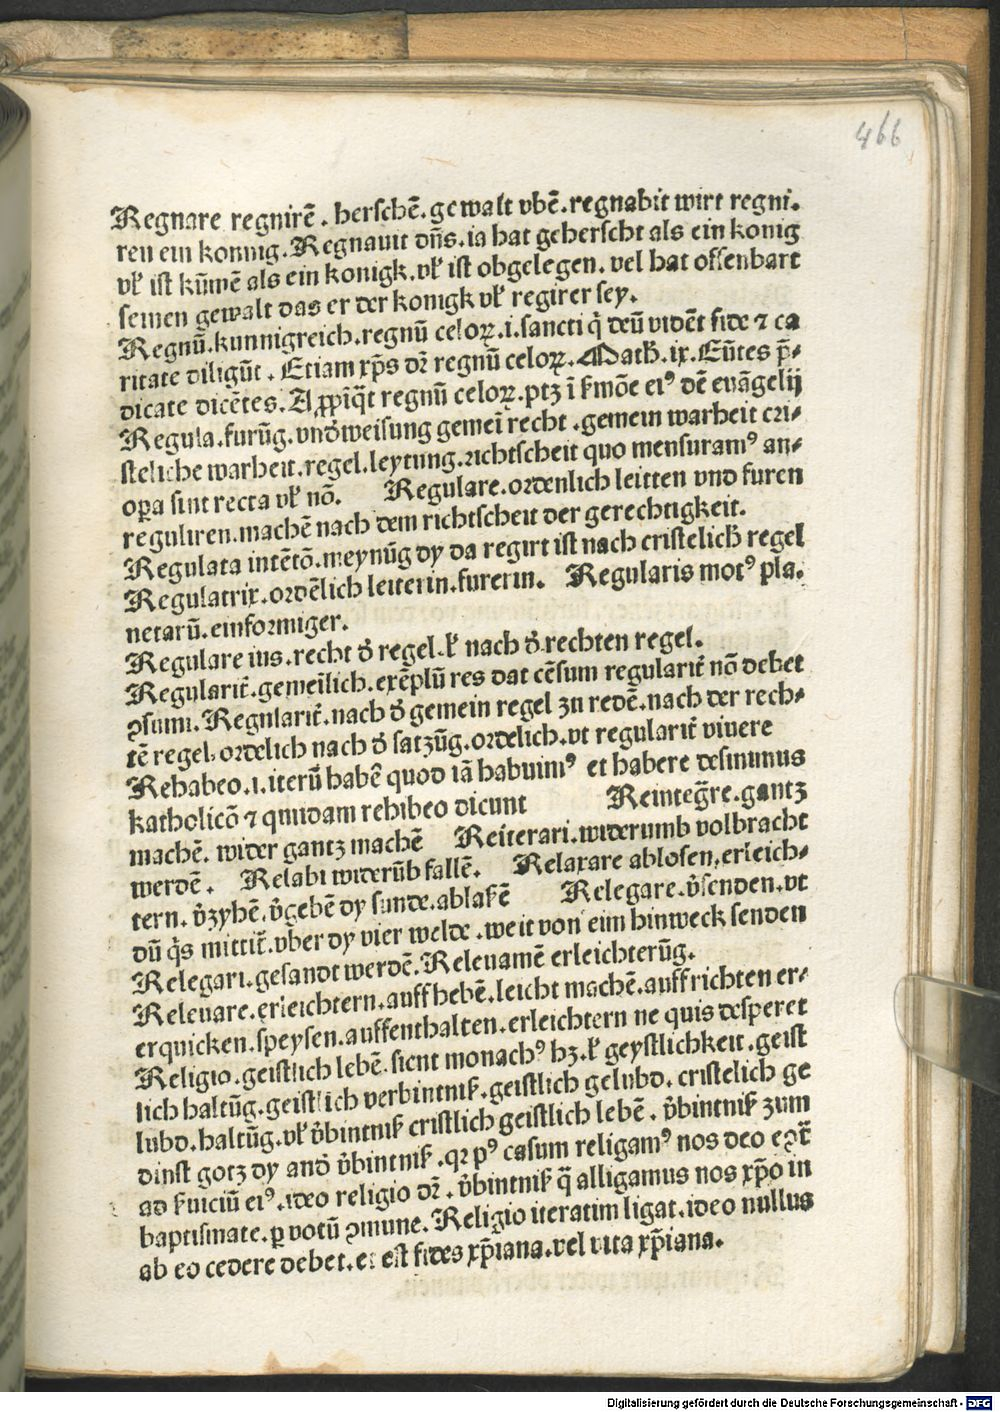 466
Regnare regnirē . herschē . gewalt vbē . regnabit wirt regni.
ren ein konnig . Regnauit dn̄s . ia hat geherscht als ein konig
vl̕ ist kūmē als ein konigk . vl̕ ist obgelegen . vel hat offenbart
seinen gewalt das er der konigk vl̕ regirer sey.
Regnū . kunnigreich . regnū celoꝝ . i . sancti q̇ deū vidēt fide ⁊ ca
ritate diligūt . Etiam xp̄s dr̄ regnū celoꝝ . Math̕ . ix . Eūtes p̄-
dicate dicētes . Appīq̄t regnū celoꝝ . ptꝫ ī s̕mōe eiꝰ dē euāgelij
Regula . furūg . vnd̕weisung gemeī recht . gemein warheit cri-
steliche warheit . regel . leytung . richtscheit quo mensuramꝰ an-
oꝑa sint recta vl̕ nō. Regulare . ordenlich leitten vnd furen
reguliren . machē nach dem richtscheit der gerechtigkeit.
Regulata intētō . meynūg dy da regirt ist nach cristelich̕ regel
Regulatrix . ordēlich leiterin . furerin. Regularis motꝰ pla.
netarū . einformiger.
Regulare ius . recht d̕ regel . l̕ nach d̕ rechten regel.
Regularit̕ . gemeīlich . exēplū res dat cēsum regularit̕ nō debet
ꝯsumi . Regularit̕ . nach d̕ gemein regel zu redē . nach der rech-
tē regel . ordelich nach d̕ satzūg . ordelich . vt regularit̕ viuere
Rehabeo . i . iterū habē quod iā habuimꝰ et habere desinimus
katholicō ⁊ quidam rehibeo dicunt Reinteg̅re . gantz
machē . wider gantz machē Reiterari . widerumb volbracht
werdē . Relabi widerūb fallē . Relaxare ablosen . erleich-
tern . v̕zyhē . v̕gebē dy sunde . ablasē Relegare . v̕senden . vt
dū q̇s mittit̕ . vb̕er dy vier welde . weit von eim hinweck senden
Relegari . gesandt werdē . Releuamē erleichterūg.
Releuare . erleichtern . auff hebē . leicht machē . auff richten er-
erquicken . speysen . auffenthalten . erleichtern ne quis desperet
Religio . geistlich lebē . sicut monachꝰ hꝫ . l̕ geystlichkeit . geist
lich haltūg . geistlich verbintniß . geistlich gelubd . cristelich ge
lubd . haltūg . vl̕ v̕bintniß cristlich geistlich lebē . v̕bintniß zum
dinst gotz dy and̕ v̕bintniß . qꝛ pꝰ casum religamꝰ nos deo
ad s̕uiciū eiꝰ . ideo religio dr̄ . v̕bintniß q̄ alligamus nos xp̄o in
baptismate . ꝑ votū ꝯmune . Religio iteratim ligat . ideo nullus
ab eo cedere debet . et est fides xp̄iana . vel vita xp̄iana.
Digitalisierung gefördert durch die Deutsche Forschungsgemeinschaft - DFG